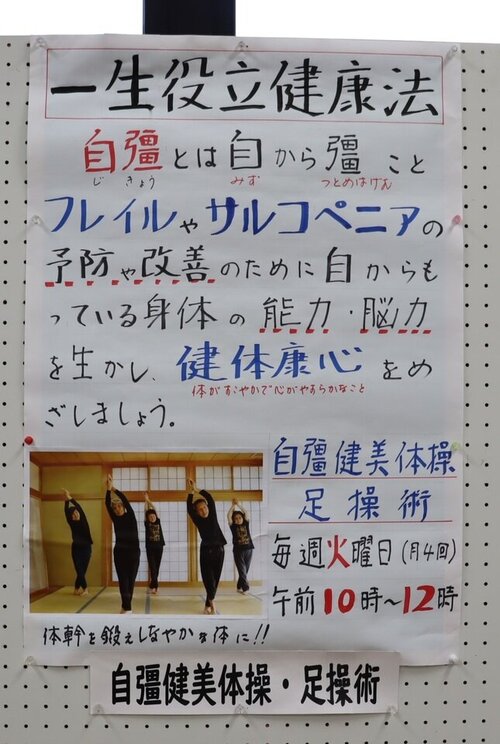 一生役立健康法
自彊とは自から彊こと
じきょう みず つとめはげん
フレイルやサルコペニアの
予防や改善のために自からも
っている身体の能力・脳力
を生かし、健体康心をめ
体がすこやかで心がやすらかなこと
ざしましょう。
自彊健美体操
足操術
毎週火曜日(月4回)
午前10時~12時
体幹を鍛えしなやかな体に!!
自彊健美体操・足操術